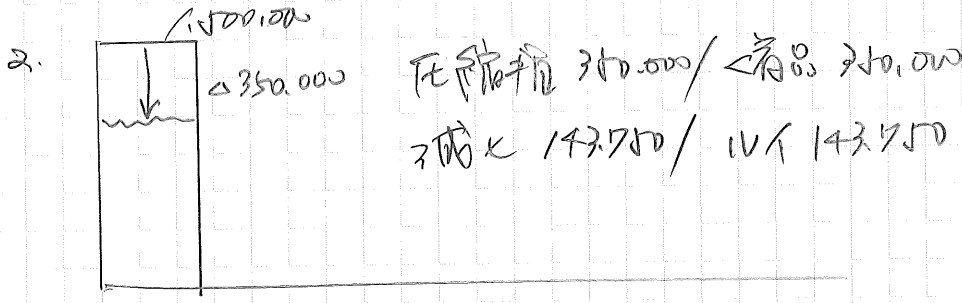 1,500,000
2.
△350,000
圧縮損 350,000 / 備品 350,000
143,750 / 143,750